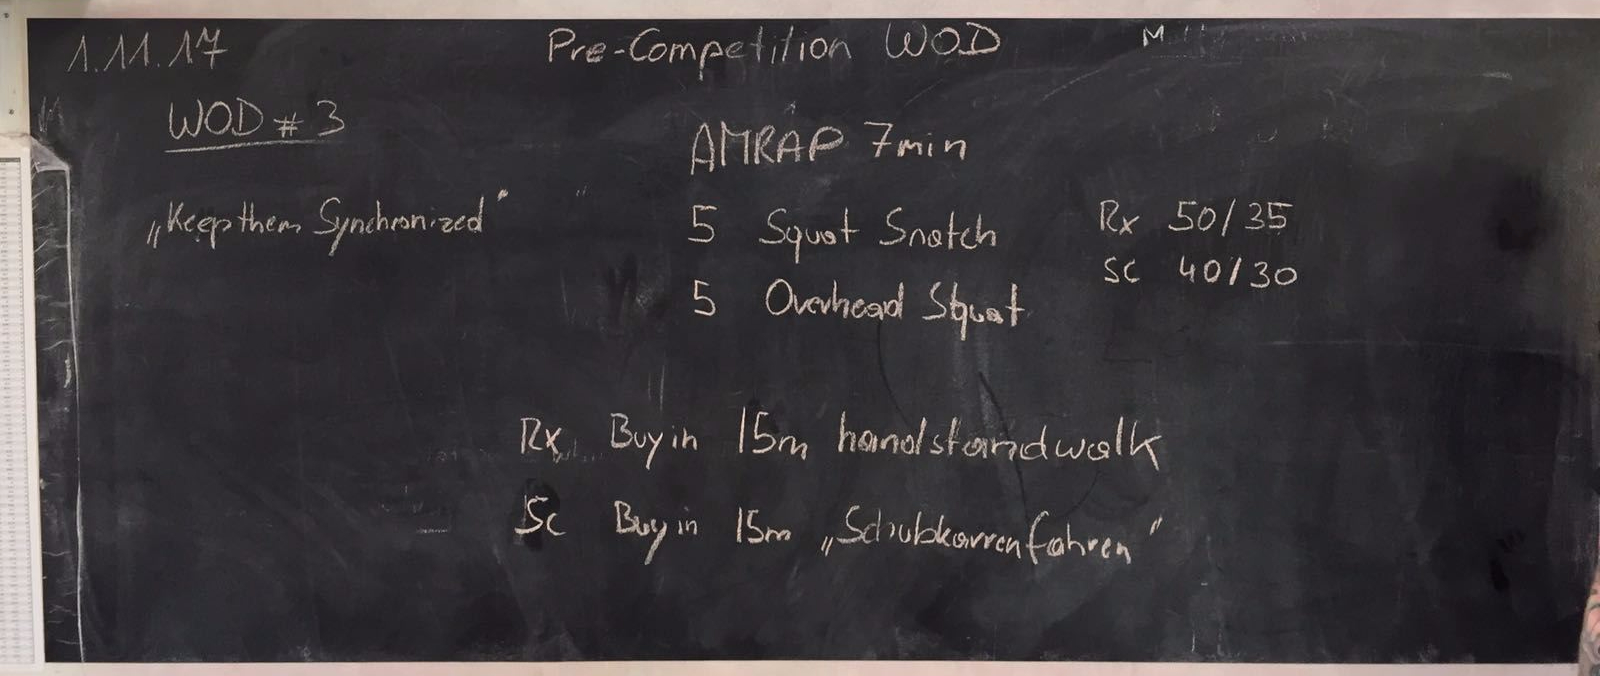 1.11.17 Pre-Competition WOD M
WOD # 3
AMRAP 7min
„Keep them Synchronized"
5 Squat Snatch Rx 50/35
Sc 40/30
5 Overhead Squat
Rx Buy in 15m handstandwalk
Sc Buy in 15m „Schubkarrenfahren"